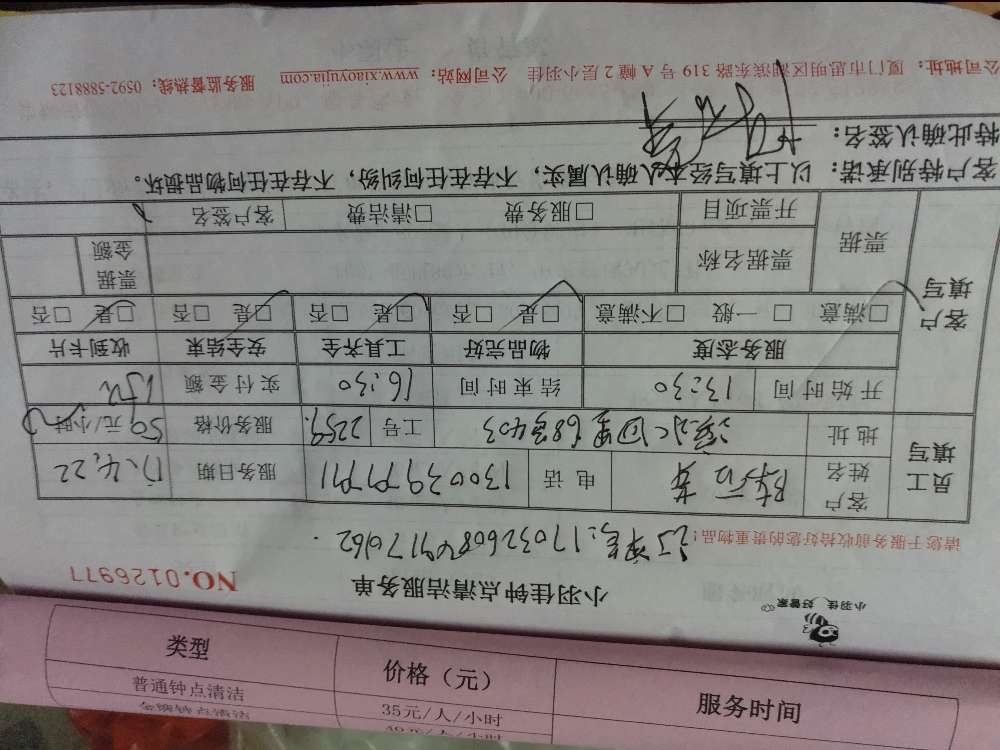 小羽佳 好管家
小羽佳钟点清洁服务单 NO.0126977
请您于服务前收拾好您的贵重物品!
订单号:
员工填写 客户姓名 电话 服务日期 17.4.22
地址 68号403 工号 2259. 服务价格 50元/小时
开始时间 13:30 结束时间 16:30 实付金额
客户填写 服务态度 物品完好 工具齐全 安全结束 收到卡片
□满意 □一般 □不满意 □是 □否 □是 □否 □是 □否 □是 □否
票据 票据名称 票据金额
开票项目 □服务费 □清洁费 客户签名
客户特别承诺:以上填写经本人确认属实,不存在任何纠纷,不存在任何物品损坏。
特此确认签名:
公司地址:厦门市思明区湖滨东路319号A幢2层小羽佳 公司网站:www.xiaoyujia.com 服务监督热线:0592-5888123
类型 价格(元) 服务时间
普通钟点清洁 35元/人/小时
金牌钟点清洁